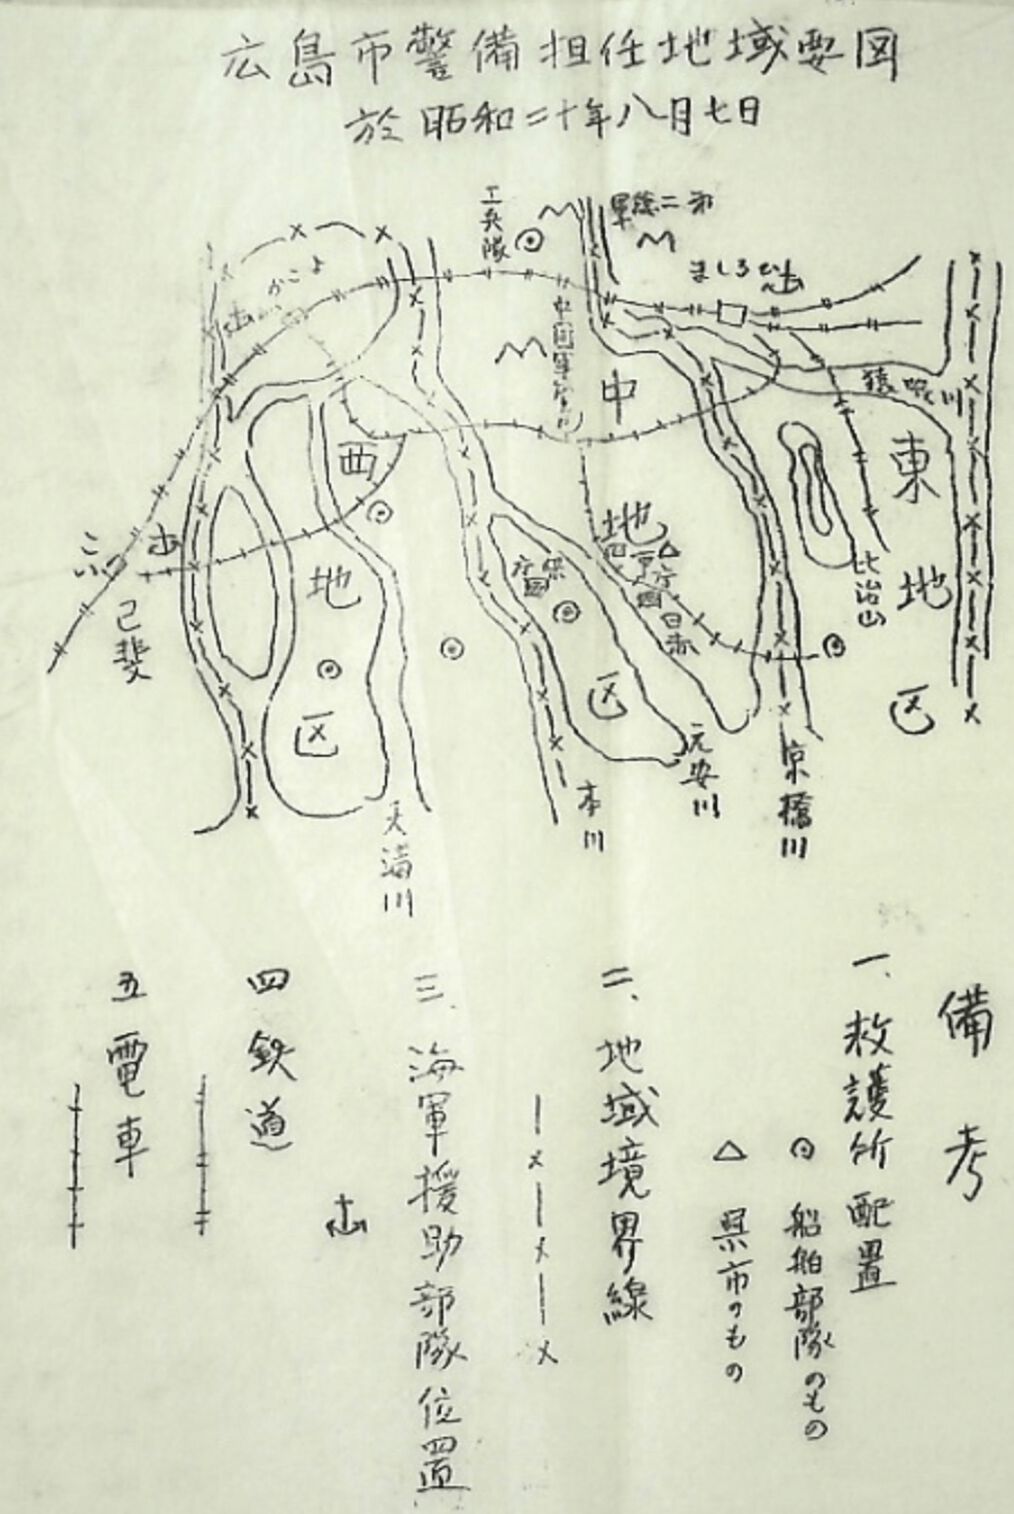 広島市警備担任地域要図
於昭和二十年八月七日
工兵隊
第二総軍
ひろしま
よこがわ
中国軍管区
中
地
区
猿猴川
東
地
区
西
地
区
比治山
日赤
こい
己斐
京橋川
元安川
本川
天満川
備考
一、救護所配置
船舶部隊のもの
県市のもの
二、地域境界線
三、海軍援助部隊位置
四 鉄道
五 電車